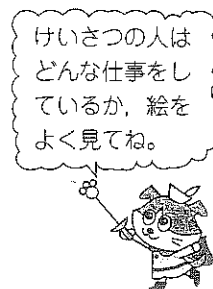 けいさつの人は
どんな仕事をし
ているか，絵を
よく見てね。